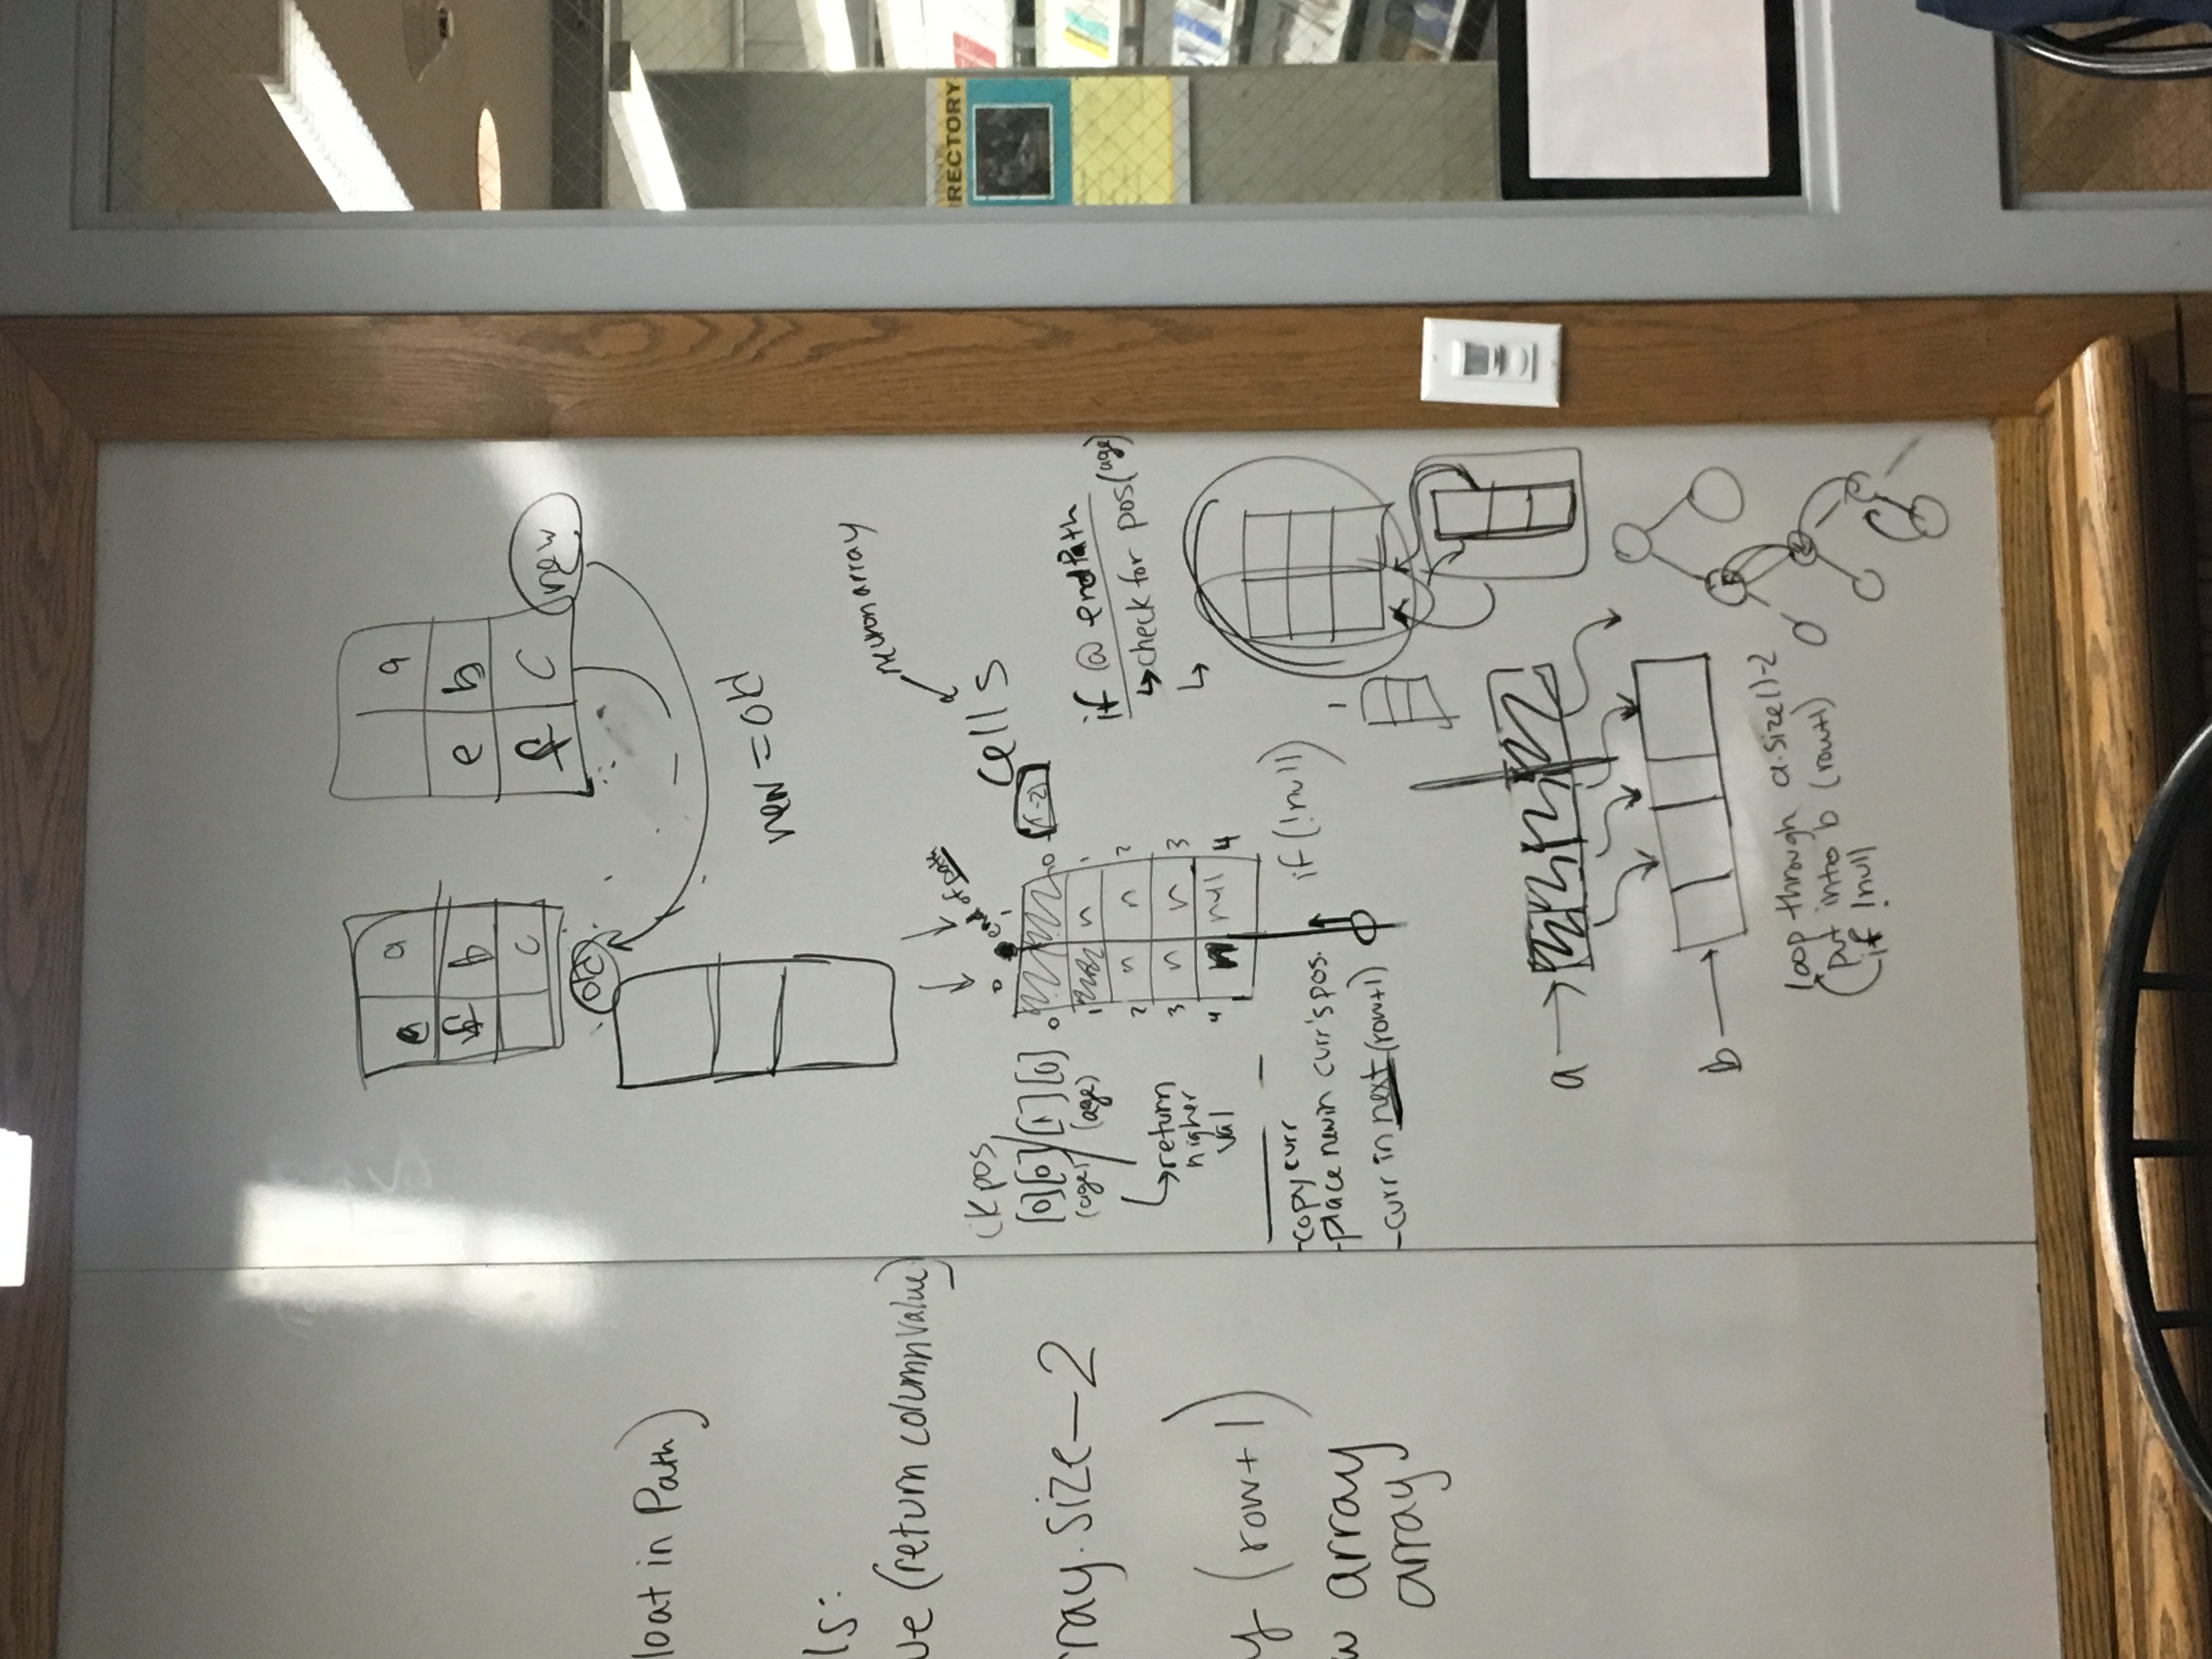 loat in Path)
ls:
ue (return columnvalue)
rray.size-2
y (row+1)
w array
array
a
b
c
old
a
e b
f c
new
new = old
neuron array
cells
end of path
0 1
ck pos
[0][0] / [1][0]
(age) (age)
return
higher
val
0 0
1 n 1
2 n n 2
3 n n 3
4 n null 4
(-2)
if @ endPath
check for pos(age)
-copy curr
-place new in curr's pos.
-curr in next (row+1)
if (!null)
1
a
b
loop through a.size()-2
put into b (row+1)
if !null
DIRECTORY